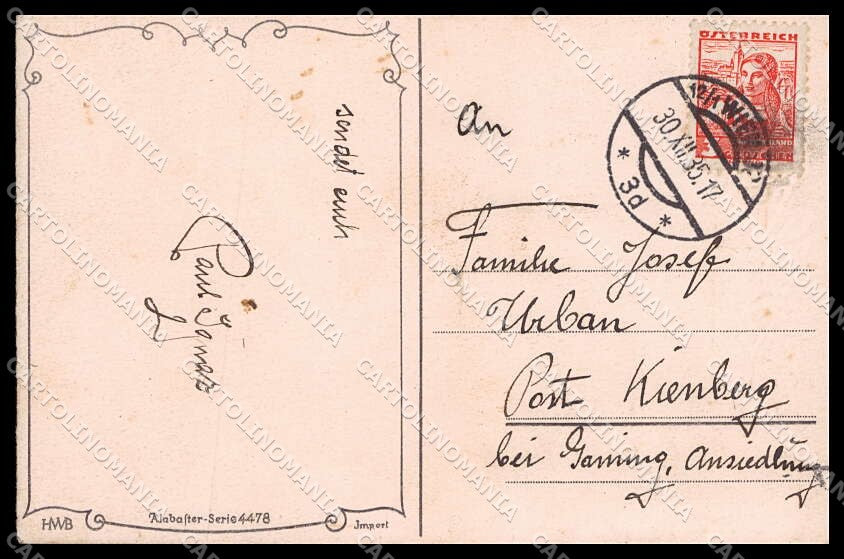 sendet euch
Paul Ignaz
HWB
Alabaster-Serie 4478
Import
ÖSTERREICH
30.XII.35.17
* 3d *
An
Familie Josef
Urban
Post Kienberg
bei Gaming, Ansiedlung
CARTOLINOMANIA